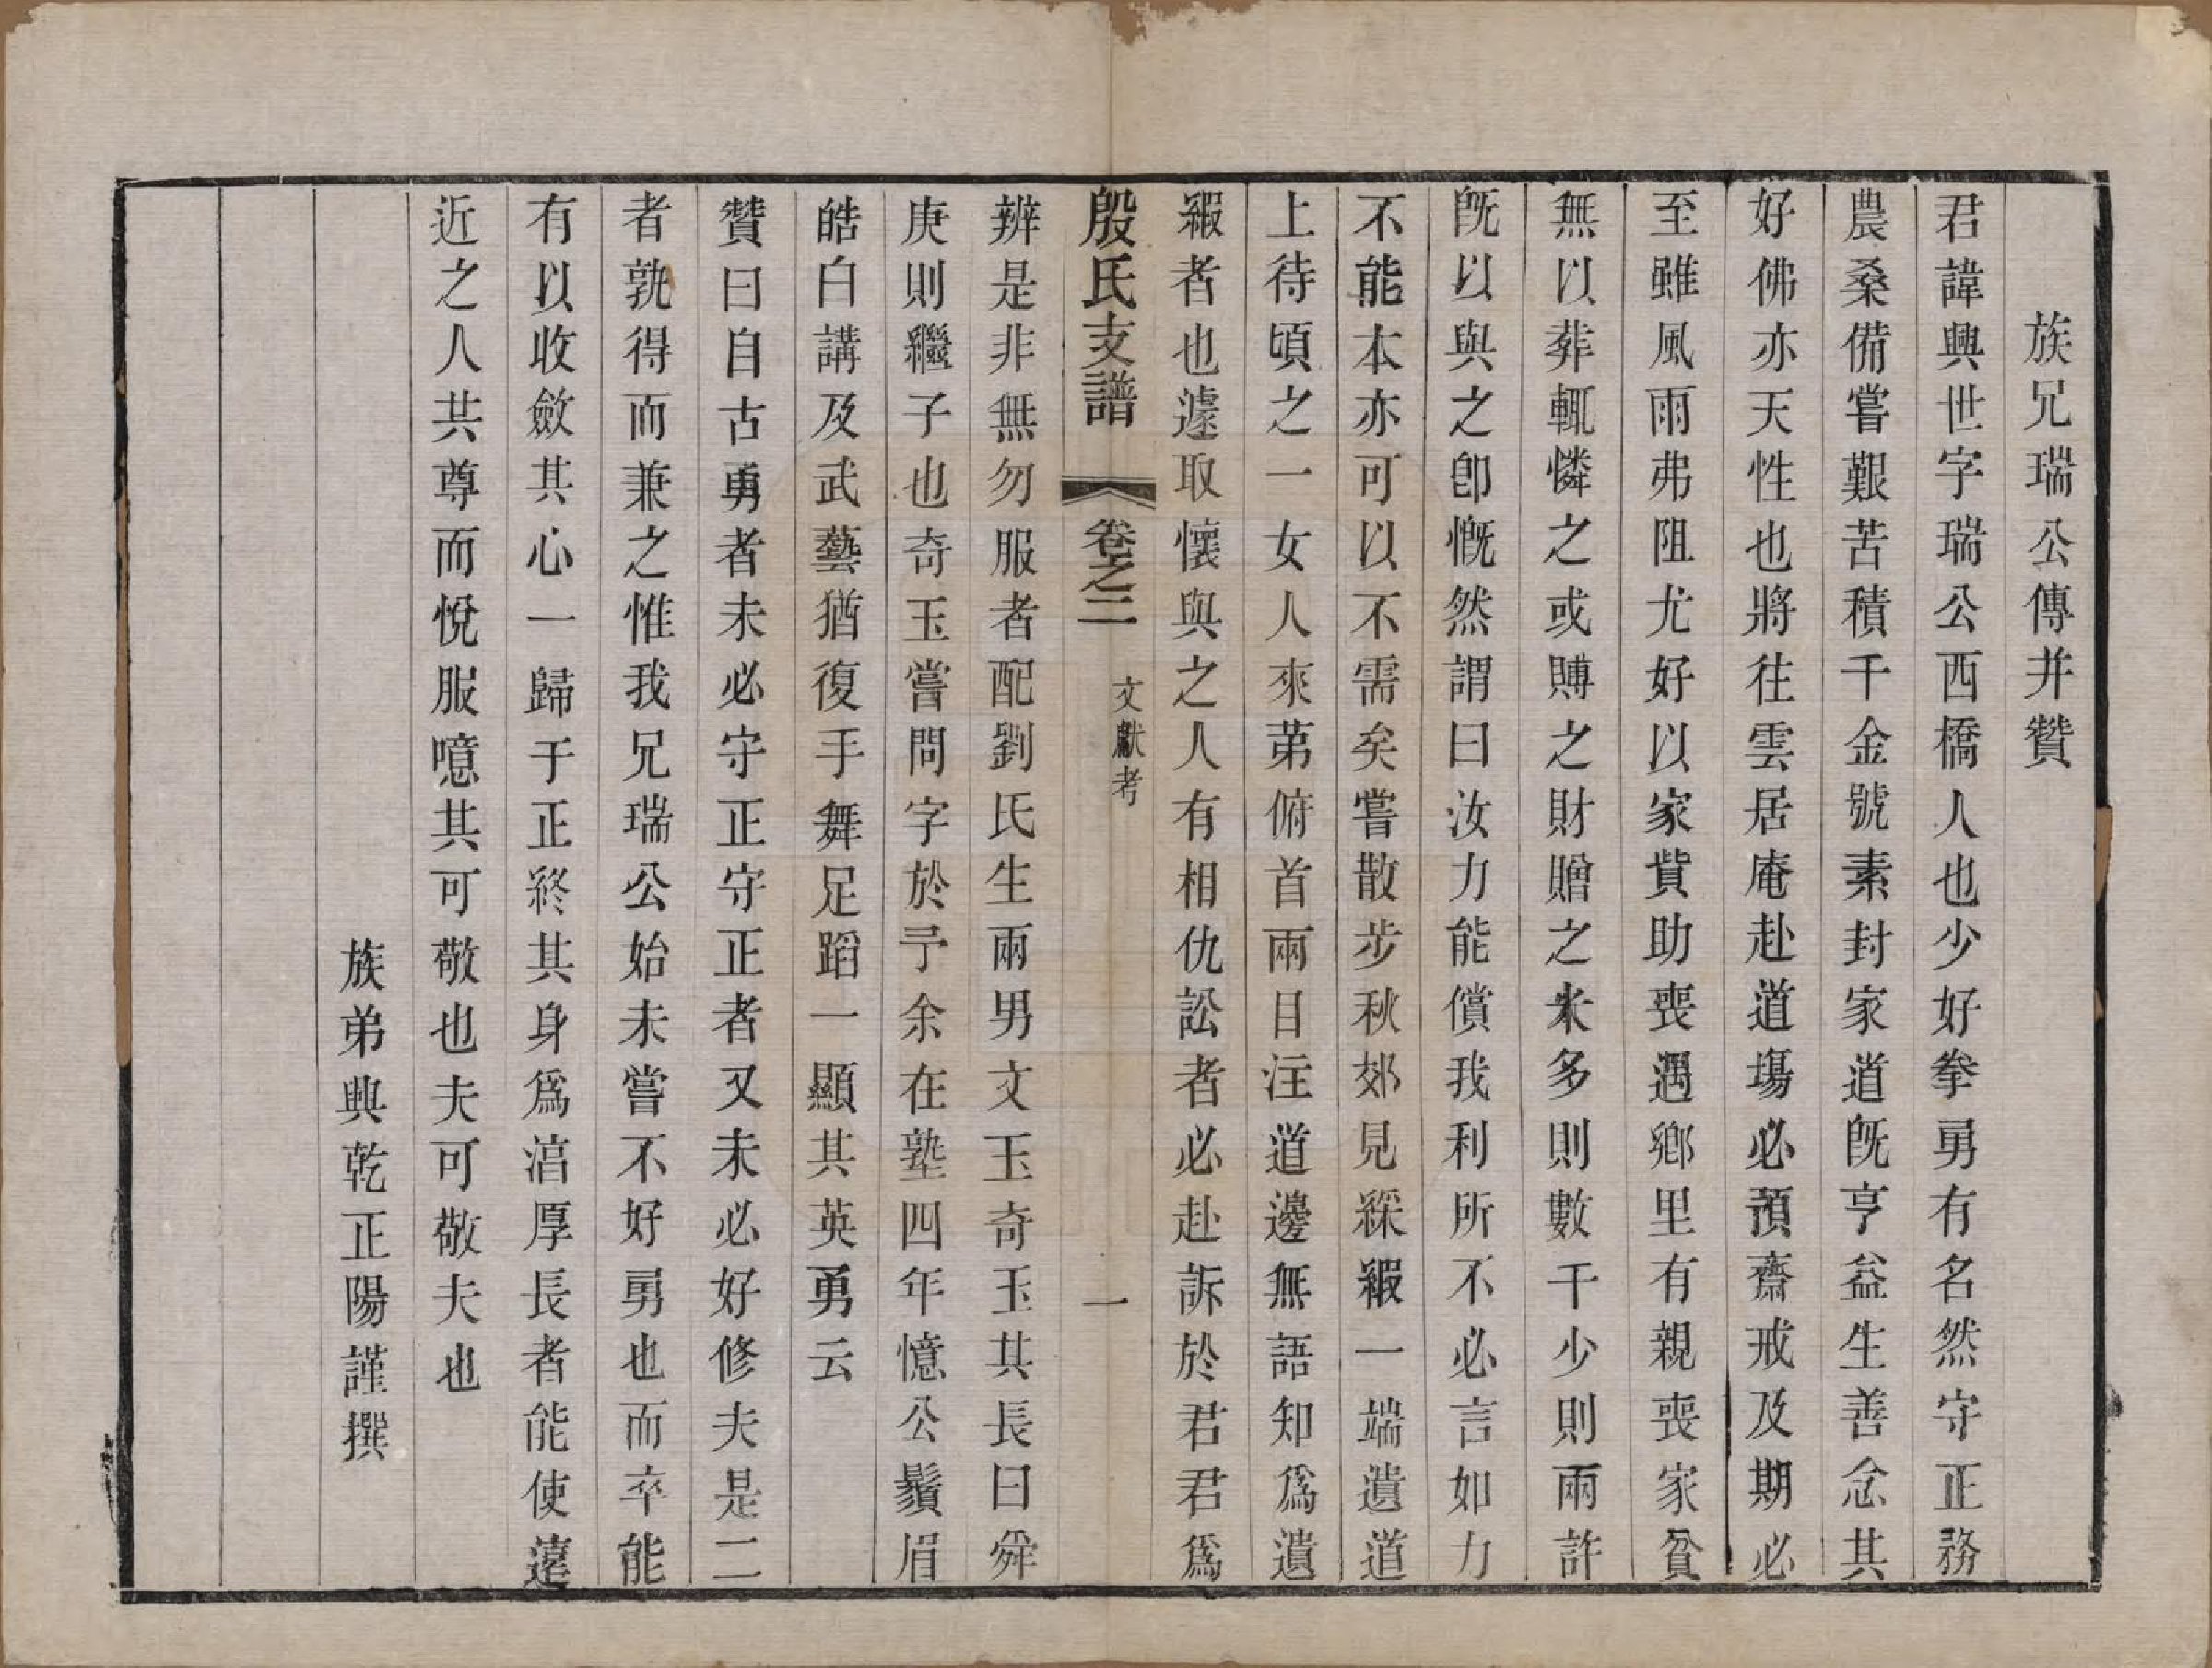 族兄瑞公傳并贊
君諱興世字瑞公西橋人也少好拳勇有名然守正務
農桑備嘗艱苦積千金號素封家道旣亨益生善念其
好佛亦天性也將往雲居庵赴道塲必預齋戒及期必
至雖風雨弗阻尤好以家貲助喪遇鄕里有親喪家貧
無以葬輒憐之或賻之財贈之米多則數千少則兩許
旣以與之卽慨然謂曰汝力能償我利所不必言如力
不能本亦可以不需矣嘗散步秋郊見綵緞一端遺道
上待頃之一女人來第俯首兩目注道邊無語知爲遺
緞者也遽取懷與之人有相仇訟者必赴訴於君君爲
殷氏支譜 卷之二 文獻考 一
辨是非無勿服者配劉氏生兩男文玉奇玉其長曰舜
庚則繼子也奇玉嘗問字於予余在塾四年憶公鬚眉
皓白講及武藝猶復手舞足蹈一顯其英勇云
贊曰自古勇者未必守正守正者又未必好修夫是二
者孰得而兼之惟我兄瑞公始未嘗不好勇也而卒能
有以收斂其心一歸于正終其身爲湻厚長者能使遠
近之人共尊而悅服噫其可敬也夫可敬夫也
族弟興乾正陽謹撰